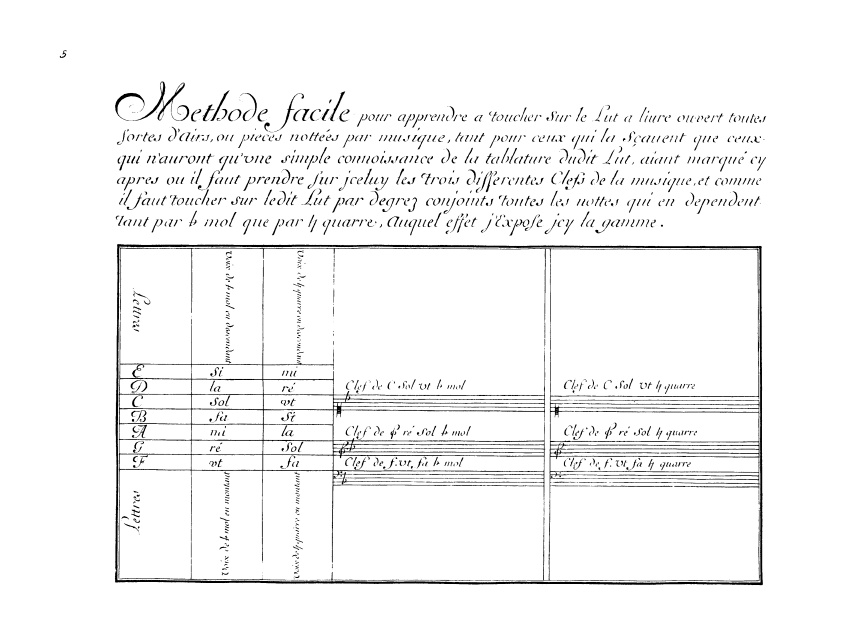 5
Methode facile pour apprendre a toucher sur le Lut a liure ouvert toutes
sortes d'airs, ou pieces nottées par musique, tant pour ceux qui la sçauent que ceux
qui n'auront qu'vne simple connoissance de la tablature dudit Lut, aiant marqué cy
apres ou il faut prendre sur jceluy les trois differentes Clefs de la musique, et comme
il faut toucher sur ledit Lut par degrez conjoints toutes les nottes qui en dependent
tant par ♭ mol que par ♮ quarre, auquel effet j'Expose jcy la gamme.
Lettres
Voix de ♭ mol en descendant
Voix de ♮ quarre en descendant
E si mi
D la ré
C sol vt
B fa si
A mi la
G ré sol
F vt fa
Lettres
Voix de ♭ mol en montant
Voix de ♮ quarre en montant
Clef de C Sol vt ♭ mol
Clef de ré Sol ♭ mol
Clef de f. vt, fa ♭ mol
Clef de C Sol vt ♮ quarre
Clef de ré Sol ♮ quarre
Clef de f. vt, fa ♮ quarre